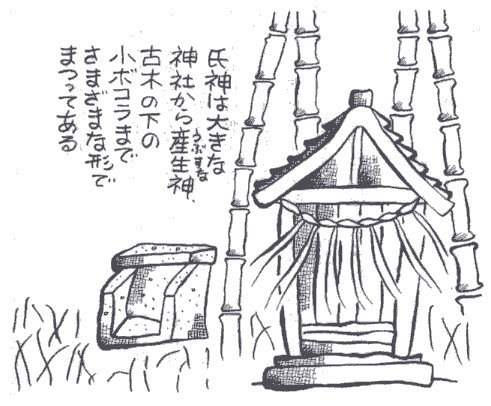 氏神は大きな
神社から産生神、
うぶすな
古木の下の
小ボコラまで
さまざまな形で
まつってある